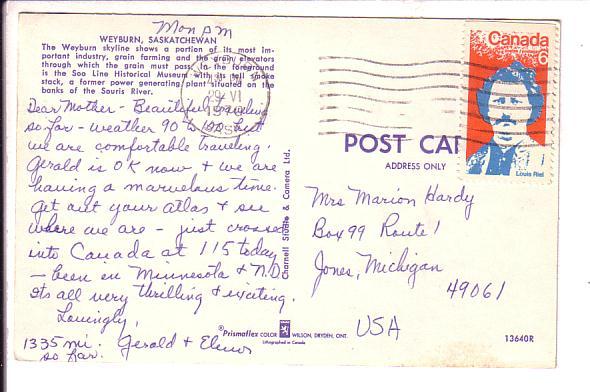 Mon pm
WEYBURN, SASKATCHEWAN
The Weyburn skyline shows a portion of its most im-
portant industry, grain farming and the grain elevators
through which the grain must pass. In the foreground
is the Soo Line Historical Museum with its tell smoke
stack, a former power generating plant situated on the
banks of the Souris River.
Dear Mother - Beautiful traveling
so far - weather 90 to 100 but
we are comfortable traveling.
Gerald is OK now & we are
having a marvelous time.
Get out your atlas & see
where we are - just crossed
into Canada at 115 today
- been in Minnesota & N.D.
Its all very thrilling & exciting.
Lovingly,
Gerald &
1335 mi.
so far.
Charnell Studio & Camera Ltd.
29 VI
Canada
6
Louis Riel
POST CA
ADDRESS ONLY
Mrs Marion Hardy
Box 99 Route 1
Jones, Michigan
49061
USA
Prismaflex COLOR WILSON, DRYDEN, ONT.
Lithographed in Canada
13640R